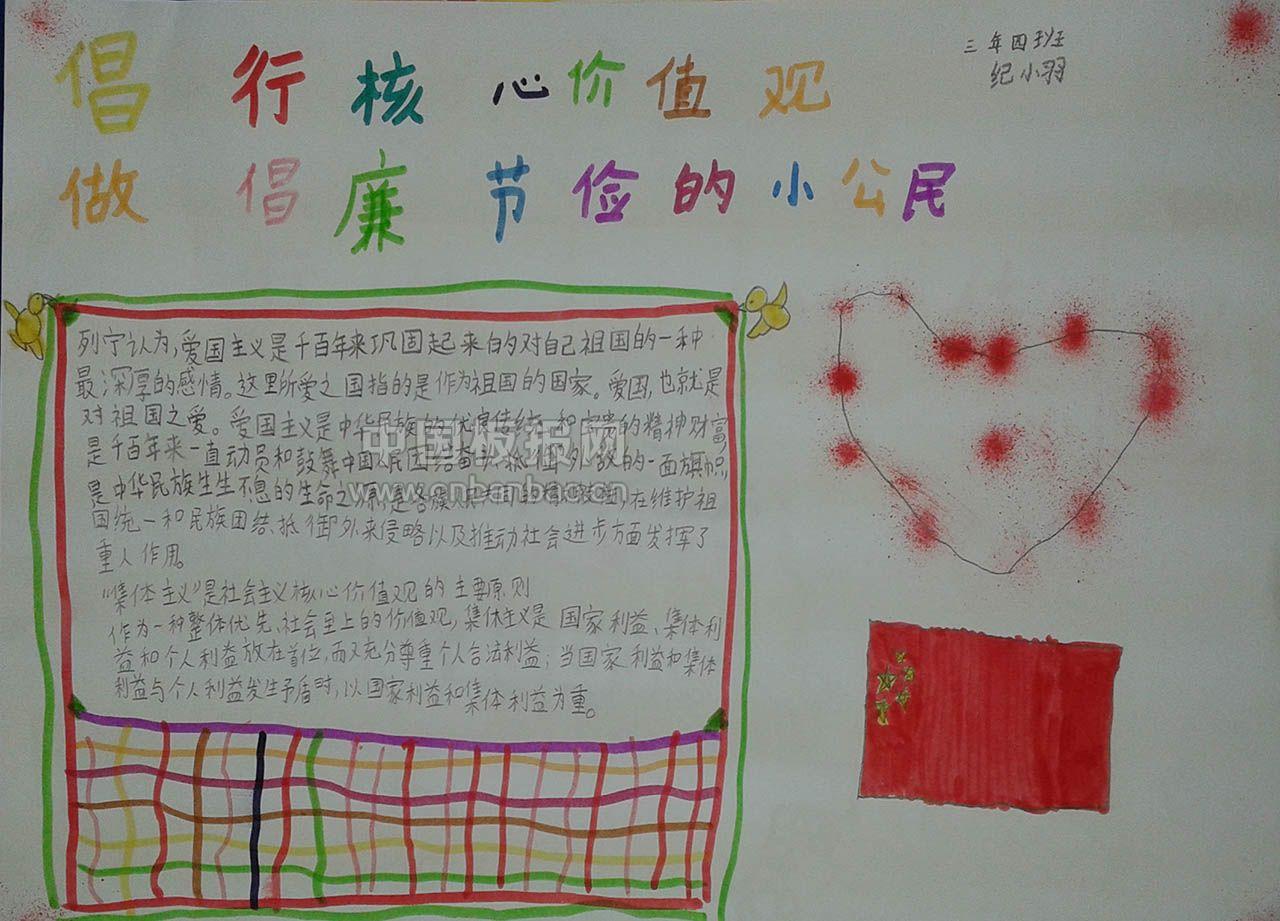 倡行核心价值观
三年四班
纪小羽
做倡廉节俭的小公民
列宁认为，爱国主义是千百年来巩固起来的对自己祖国的一种
最深厚的感情。这里所爱之国指的是作为祖国的国家。爱国，也就是
对祖国之爱。爱国主义是中华民族的优良传统和宝贵的精神财富，
是千百年来一直动员和鼓舞中国人民团结奋斗抵御外敌的一面旗帜，
是中华民族生生不息的生命之原，是各族人民共同的，在维护祖
国统一和民族团结、抵御外来侵略以及推动社会进步方面发挥了
重人作用。
“集体主义”是社会主义核心价值观的主要原则
作为一种整体优先、社会至上的价值观，集体主义是国家利益、集体利
益和个人利益放在首位，而又充分尊重个人合法利益；当国家利益和集体
利益与个人利益发生矛盾时，以国家利益和集体利益为重。
中国板报网
www.cnbanbao.cn